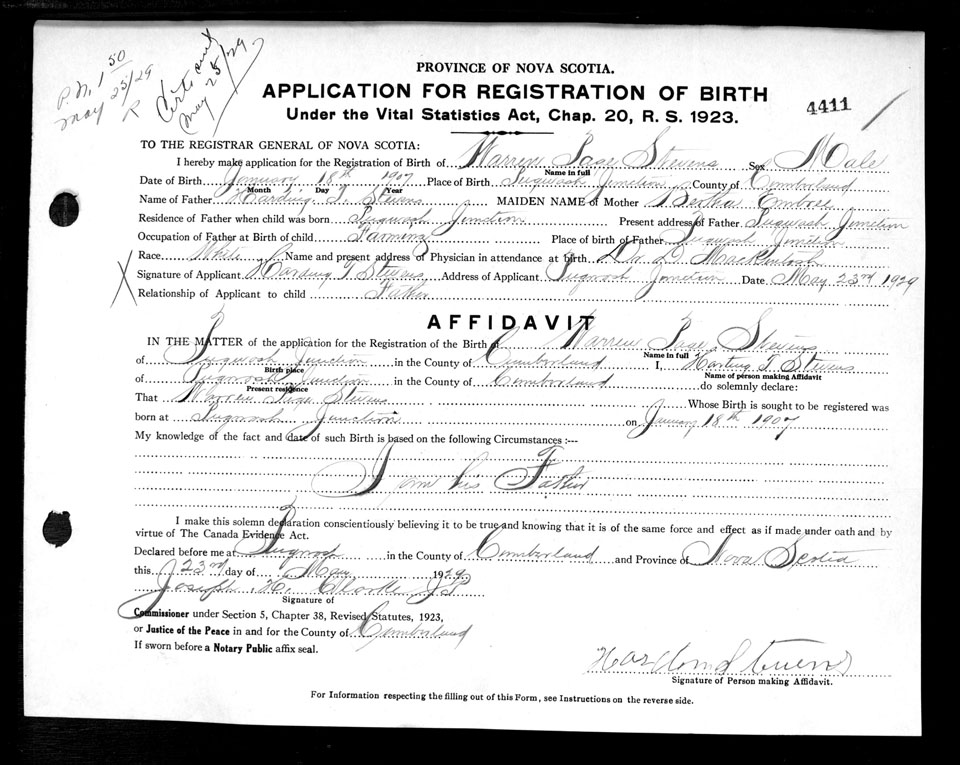 P.N. 1 50
May 25/29
R
Certs sent
May 25/29
PROVINCE OF NOVA SCOTIA.
APPLICATION FOR REGISTRATION OF BIRTH
4411
Under the Vital Statistics Act, Chap. 20, R. S. 1923.
TO THE REGISTRAR GENERAL OF NOVA SCOTIA:
I hereby make application for the Registration of Birth of Warren Page Stevens Sex Male
Name in full
Date of Birth January 18th 1907 Place of Birth Pugwash Junction County of Cumberland
Month Day Year
Name of Father Harding T. Stevens MAIDEN NAME of Mother Bertha Embree
Residence of Father when child was born Pugwash Junction Present address of Father Pugwash Junction
Occupation of Father at Birth of child Farming Place of birth of Father Pugwash Junction
Race White Name and present address of Physician in attendance at birth Dr. D. MacKintosh
X Signature of Applicant Harding T Stevens Address of Applicant Pugwash Junction Date May 23rd 1929
Relationship of Applicant to child Father
AFFIDAVIT
IN THE MATTER of the application for the Registration of the Birth of Warren Page Stevens
Name in full
of Pugwash Junction in the County of Cumberland I, Harding T Stevens
Birth place Name of person making Affidavit
of Pugwash Junction in the County of Cumberland do solemnly declare:
Present residence
That Warren Page Stevens Whose Birth is sought to be registered was
born at Pugwash Junction on January 18th 1907
My knowledge of the fact and date of such Birth is based on the following Circumstances :---
I am his Father
I make this solemn declaration conscientiously believing it to be true and knowing that it is of the same force and effect as if made under oath and by
virtue of The Canada Evidence Act.
Declared before me at Pugwash in the County of Cumberland and Province of Nova Scotia
this 23rd day of May 1929
Joseph H. JP
Signature of
Commissioner under Section 5, Chapter 38, Revised Statutes, 1923,
or Justice of the Peace in and for the County of Cumberland
If sworn before a Notary Public affix seal.
Stevens
Signature of Person making Affidavit.
For Information respecting the filling out of this Form, see Instructions on the reverse side.